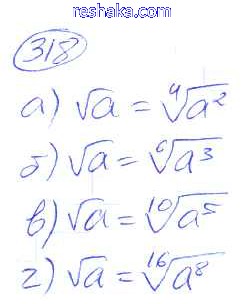 reshaka.com
318
а) √a = ⁴√a²
б) √a = ⁶√a³
в) √a = ¹⁰√a⁵
г) √a = ¹⁶√a⁸